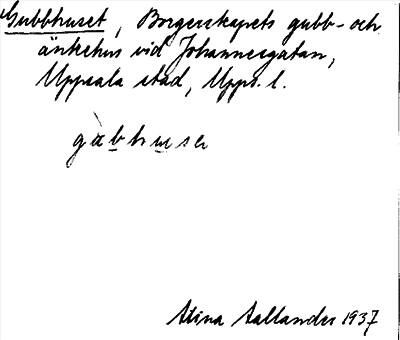 Gubbhuset, Borgerskapets gubb- och
änkehus vid Johannesgatan,
Uppsala stad, Uppl. l.
gùbhusə
Stina Sallander 1937